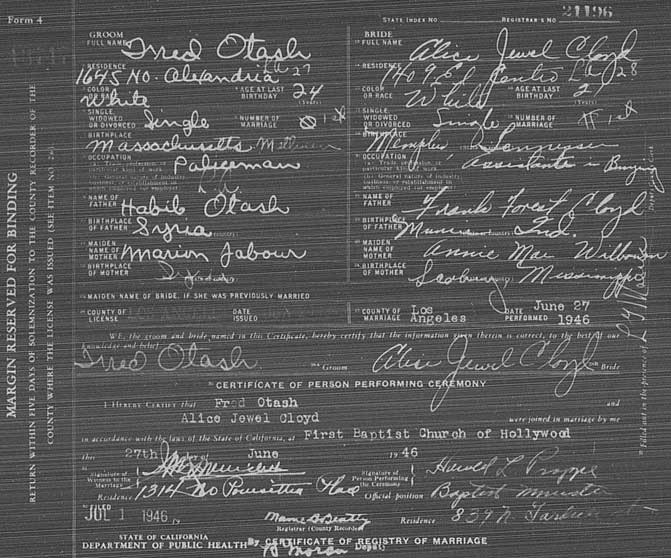 Form 4
STATE INDEX NO. REGISTRAR'S NO. 21196
GROOM
FULL NAME Fred Otash
RESIDENCE 1645 No. Alexandria LA 27
COLOR OR RACE White AGE AT LAST BIRTHDAY 24 (Years)
SINGLE, WIDOWED OR DIVORCED Single NUMBER OF MARRIAGE 1st
BIRTHPLACE Massachusetts
OCCUPATION Policeman
NAME OF FATHER Habib Otash
BIRTHPLACE OF FATHER Syria
MAIDEN NAME OF MOTHER Marion Jabour
BIRTHPLACE OF MOTHER
BRIDE
FULL NAME Alice Jewel Cloyd
RESIDENCE 1409 El Centro LA 28
COLOR OR RACE White AGE AT LAST BIRTHDAY (Years)
SINGLE, WIDOWED OR DIVORCED Single NUMBER OF MARRIAGE 1st
BIRTHPLACE Memphis Tennessee
OCCUPATION Assistant
NAME OF FATHER Frank Forest Cloyd
BIRTHPLACE OF FATHER Ind.
MAIDEN NAME OF MOTHER Annie Mae
BIRTHPLACE OF MOTHER Mississippi
MAIDEN NAME OF BRIDE, IF SHE WAS PREVIOUSLY MARRIED
COUNTY OF LICENSE LOS ANGELES DATE ISSUED
COUNTY OF MARRIAGE Los Angeles DATE PERFORMED June 27 1946
WE, the groom and bride named in this Certificate, hereby certify that the information given therein is correct, to the best of our
knowledge and belief
Fred Otash Groom Alice Jewel Cloyd Bride
CERTIFICATE OF PERSON PERFORMING CEREMONY
I HEREBY CERTIFY that Fred Otash and
Alice Jewel Cloyd were joined in marriage by me
in accordance with the laws of the State of California, at First Baptist Church of Hollywood
this 27th day of June 1946
Signature of Witness to the Marriage
Residence 1314 No
Signature of Person Performing the Ceremony Harold L Proppe
Official position Baptist Minister
Residence 839 N.
FILED JUL 1 1946 19
Mame B Beatty
Registrar (County Recorder)
By B Moran Deputy
STATE OF CALIFORNIA
DEPARTMENT OF PUBLIC HEALTH CERTIFICATE OF REGISTRY OF MARRIAGE
MARGIN RESERVED FOR BINDING
RETURN WITHIN FIVE DAYS OF SOLEMNIZATION TO THE COUNTY RECORDER OF THE
COUNTY WHERE THE LICENSE WAS ISSUED (SEE ITEM NO. 26).
Filled out in the presence of